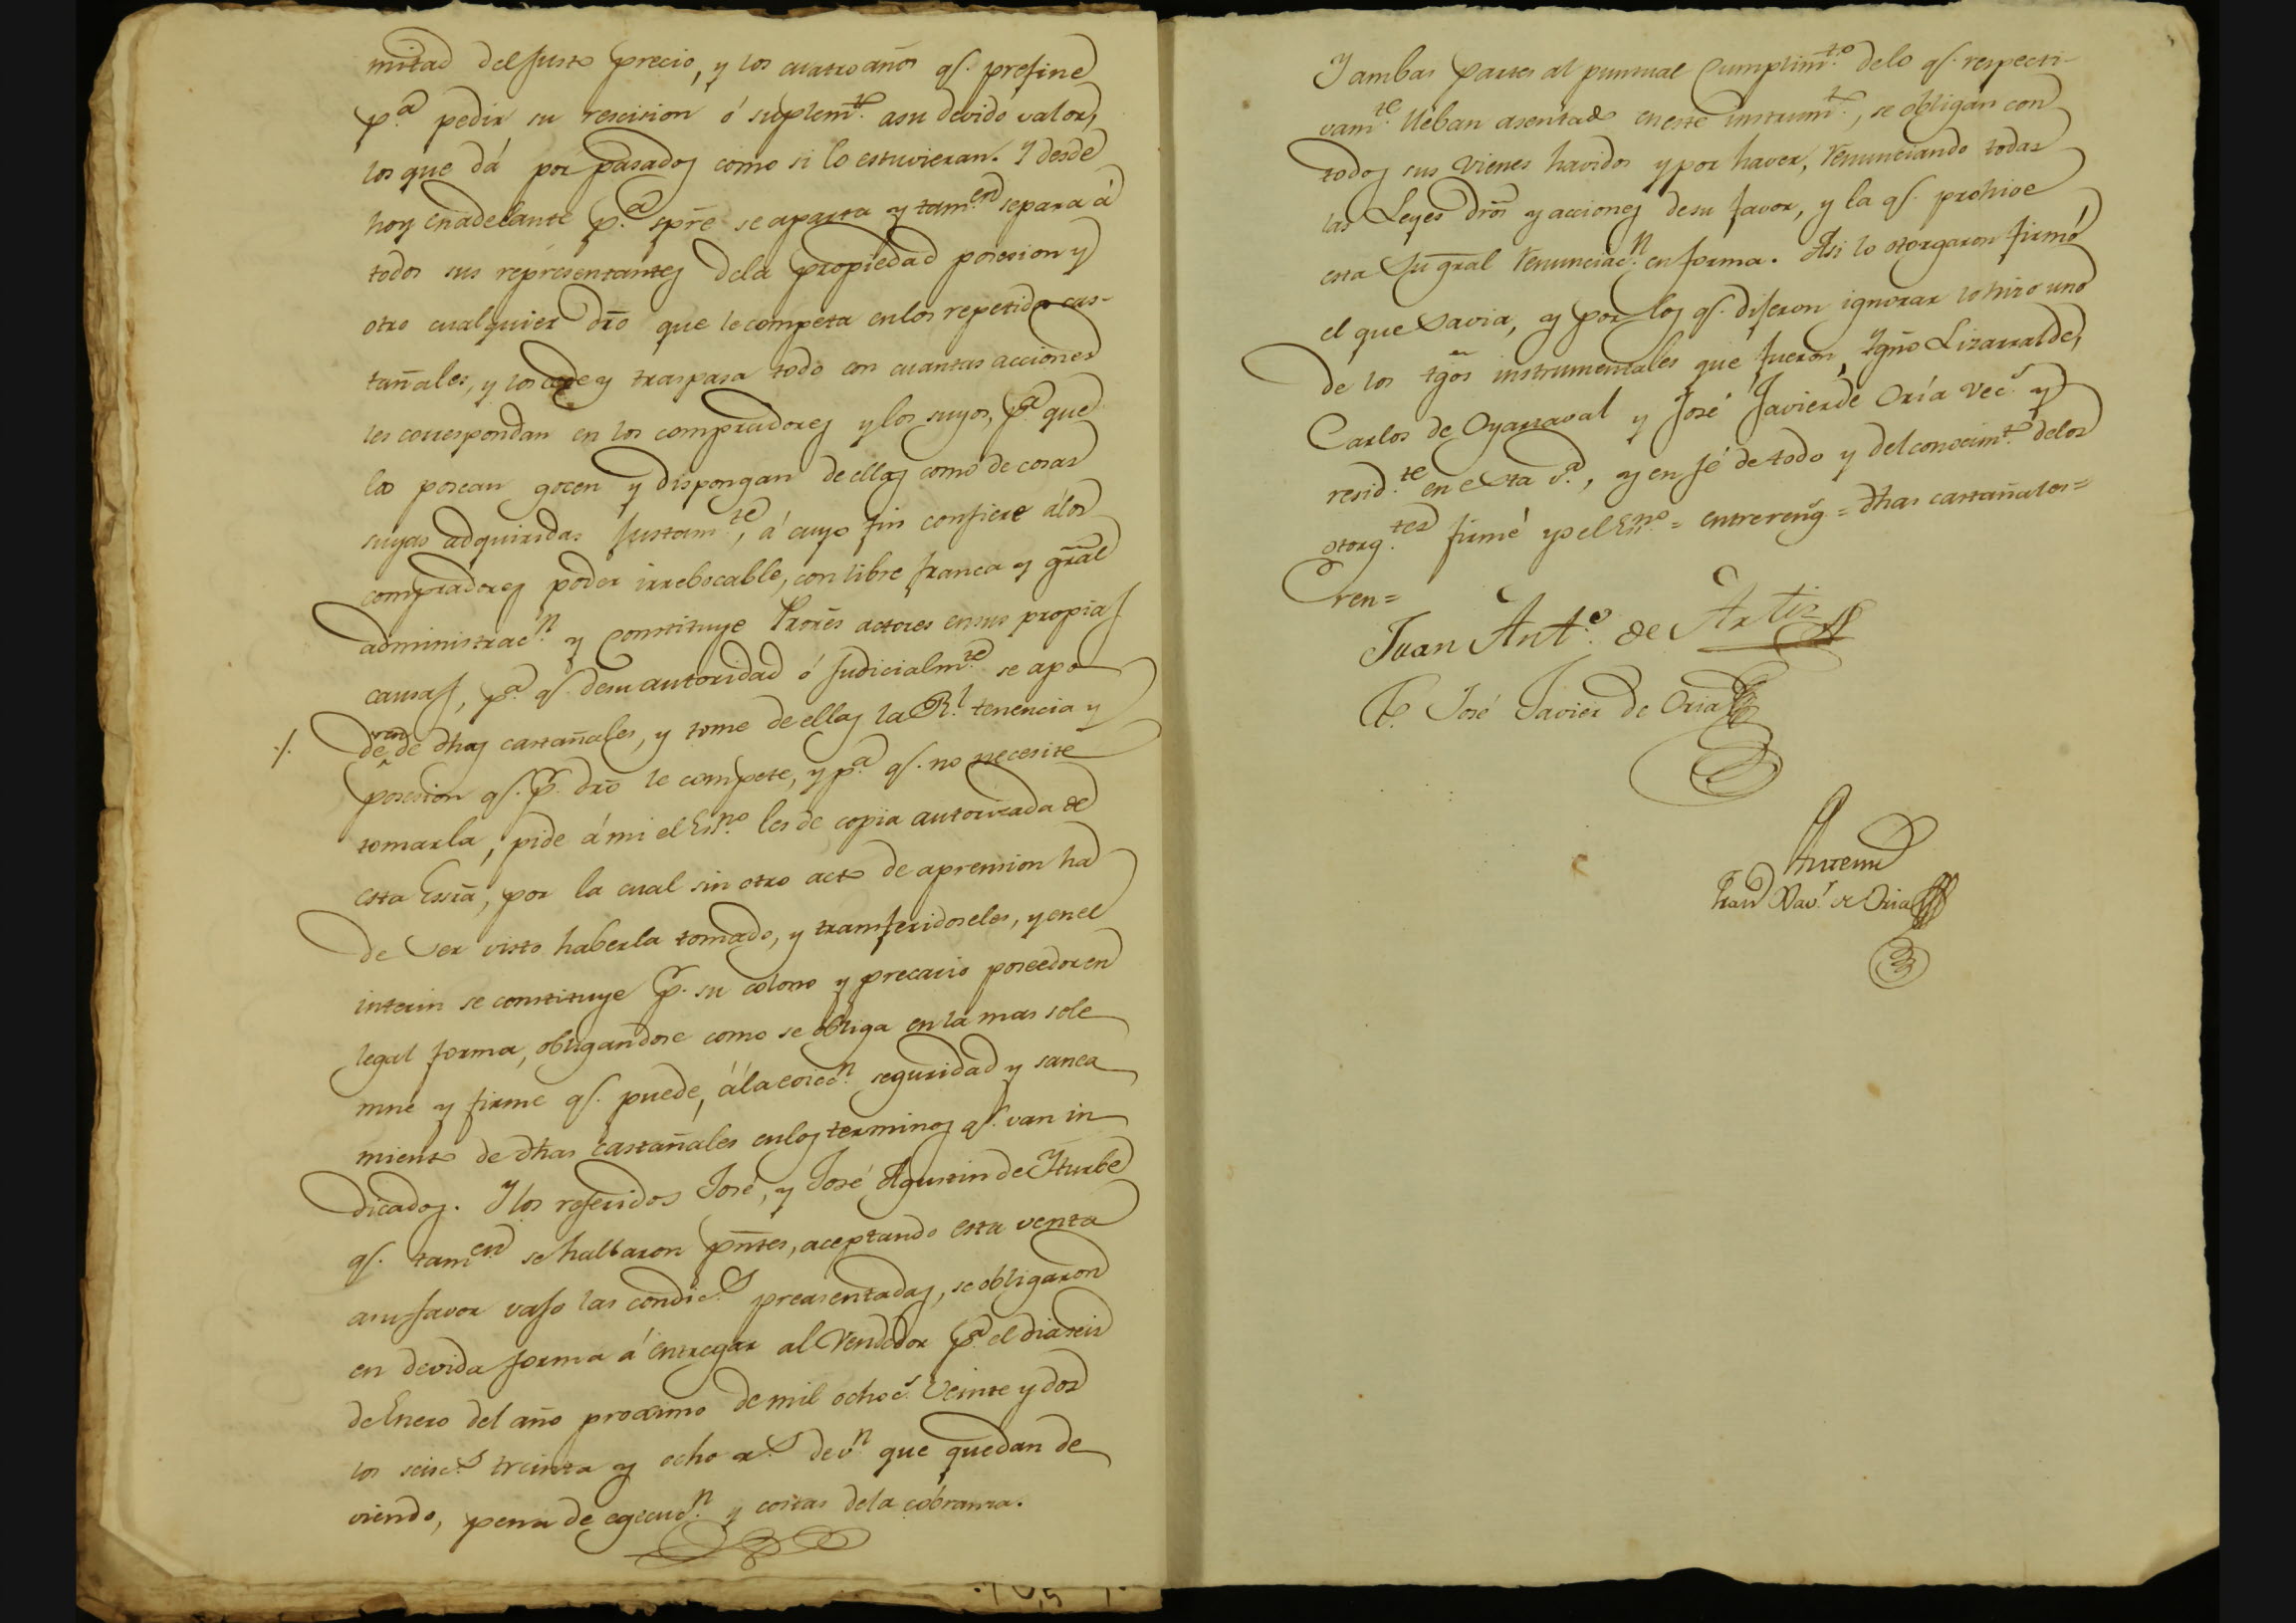 mitad del Justo precio, y los cuatro años q.e prefine
p.a pedir su rescision ó suplem.to a su devido valor,
los que dá por pasados como si lo estuvieran. Y desde
hoy en adelante p.a spre se aparta y tam.en separa á
todos sus representantes dela propiedad posesion y
otro cualquier dro que le competa en los repetidos cas-
tañales, y los cede y traspasa todo con cuantas acciones
les correspondan en los compradores y los suyos, p.a que
los posean gocen y dispongan de ellos como de cosas
suyas adquiridas Justam.te, á cuyo fin confiere á los
compradores poder irrebocable, con libre franca y gral
administrac.n y constituye Prores actores en sus propias
causas, p.a q.e de su autoridad ó Judicialm.te se apo
./. deren de dhas castañales, y tome de ellas la R.l tenencia y
posesion q.e p.r dro le compete, y p.a q.e no necesite
tomarla, pide á mi el Es.no les de copia autorizada de
esta Essra, por la cual sin otro acto de aprension ha
de ser visto haberla tomado, y transferidoseles, y en el
interin se constituye p.r su colono y precario poseedor en
legal forma, obligandose como se obliga en la mas sole
mne y firme q.e puede, á la evicc.n seguridad y sanea
miento de dhas castañales en los terminos q.e van in
dicados. Y los referidos José, y José Agustin de Yturbe
q.e tam.en se hallaron pntes, aceptando esta venta
a su favor vajo las condic.s preasentadas, se obligaron
en devida forma á entregar al Vendedor p.a el dia seis
de Enero del año proximo de mil ochoc.s Veinte y dos
los seisc.s treinta y ocho r.s de v.n que quedan de
viendo, pena de egecuc.n y costas dela cobranza.
Y ambas partes al puntual cumplim.to delo q.e respecti-
vam.te lleban asentado en este instrum.to, se obligan con
todos sus vienes havidos y por haver, renunciando todas
las Leyes dros y acciones de su favor, y la q.e prohive
esta Su gral renunciac.n en forma. Asi lo otorgaron firmó
el que savia, y por los q.e dijeron ignorar lo hizo uno
de los tgos instrumentales que fueron, Ygno Lizarralde,
Carlos de Oyarzaval y José Javier de Oría Vec.s y
resid.te en esta v.a, y en fé de todo y del conocim.to delos
otorg.tes firmé yo el Es.no = entrereng.s = dhas castañales =
ren =
Juan Ant.o de Artiz
T.o José Javier de Oria
Antemi
Fran.co Xav.r de Oria